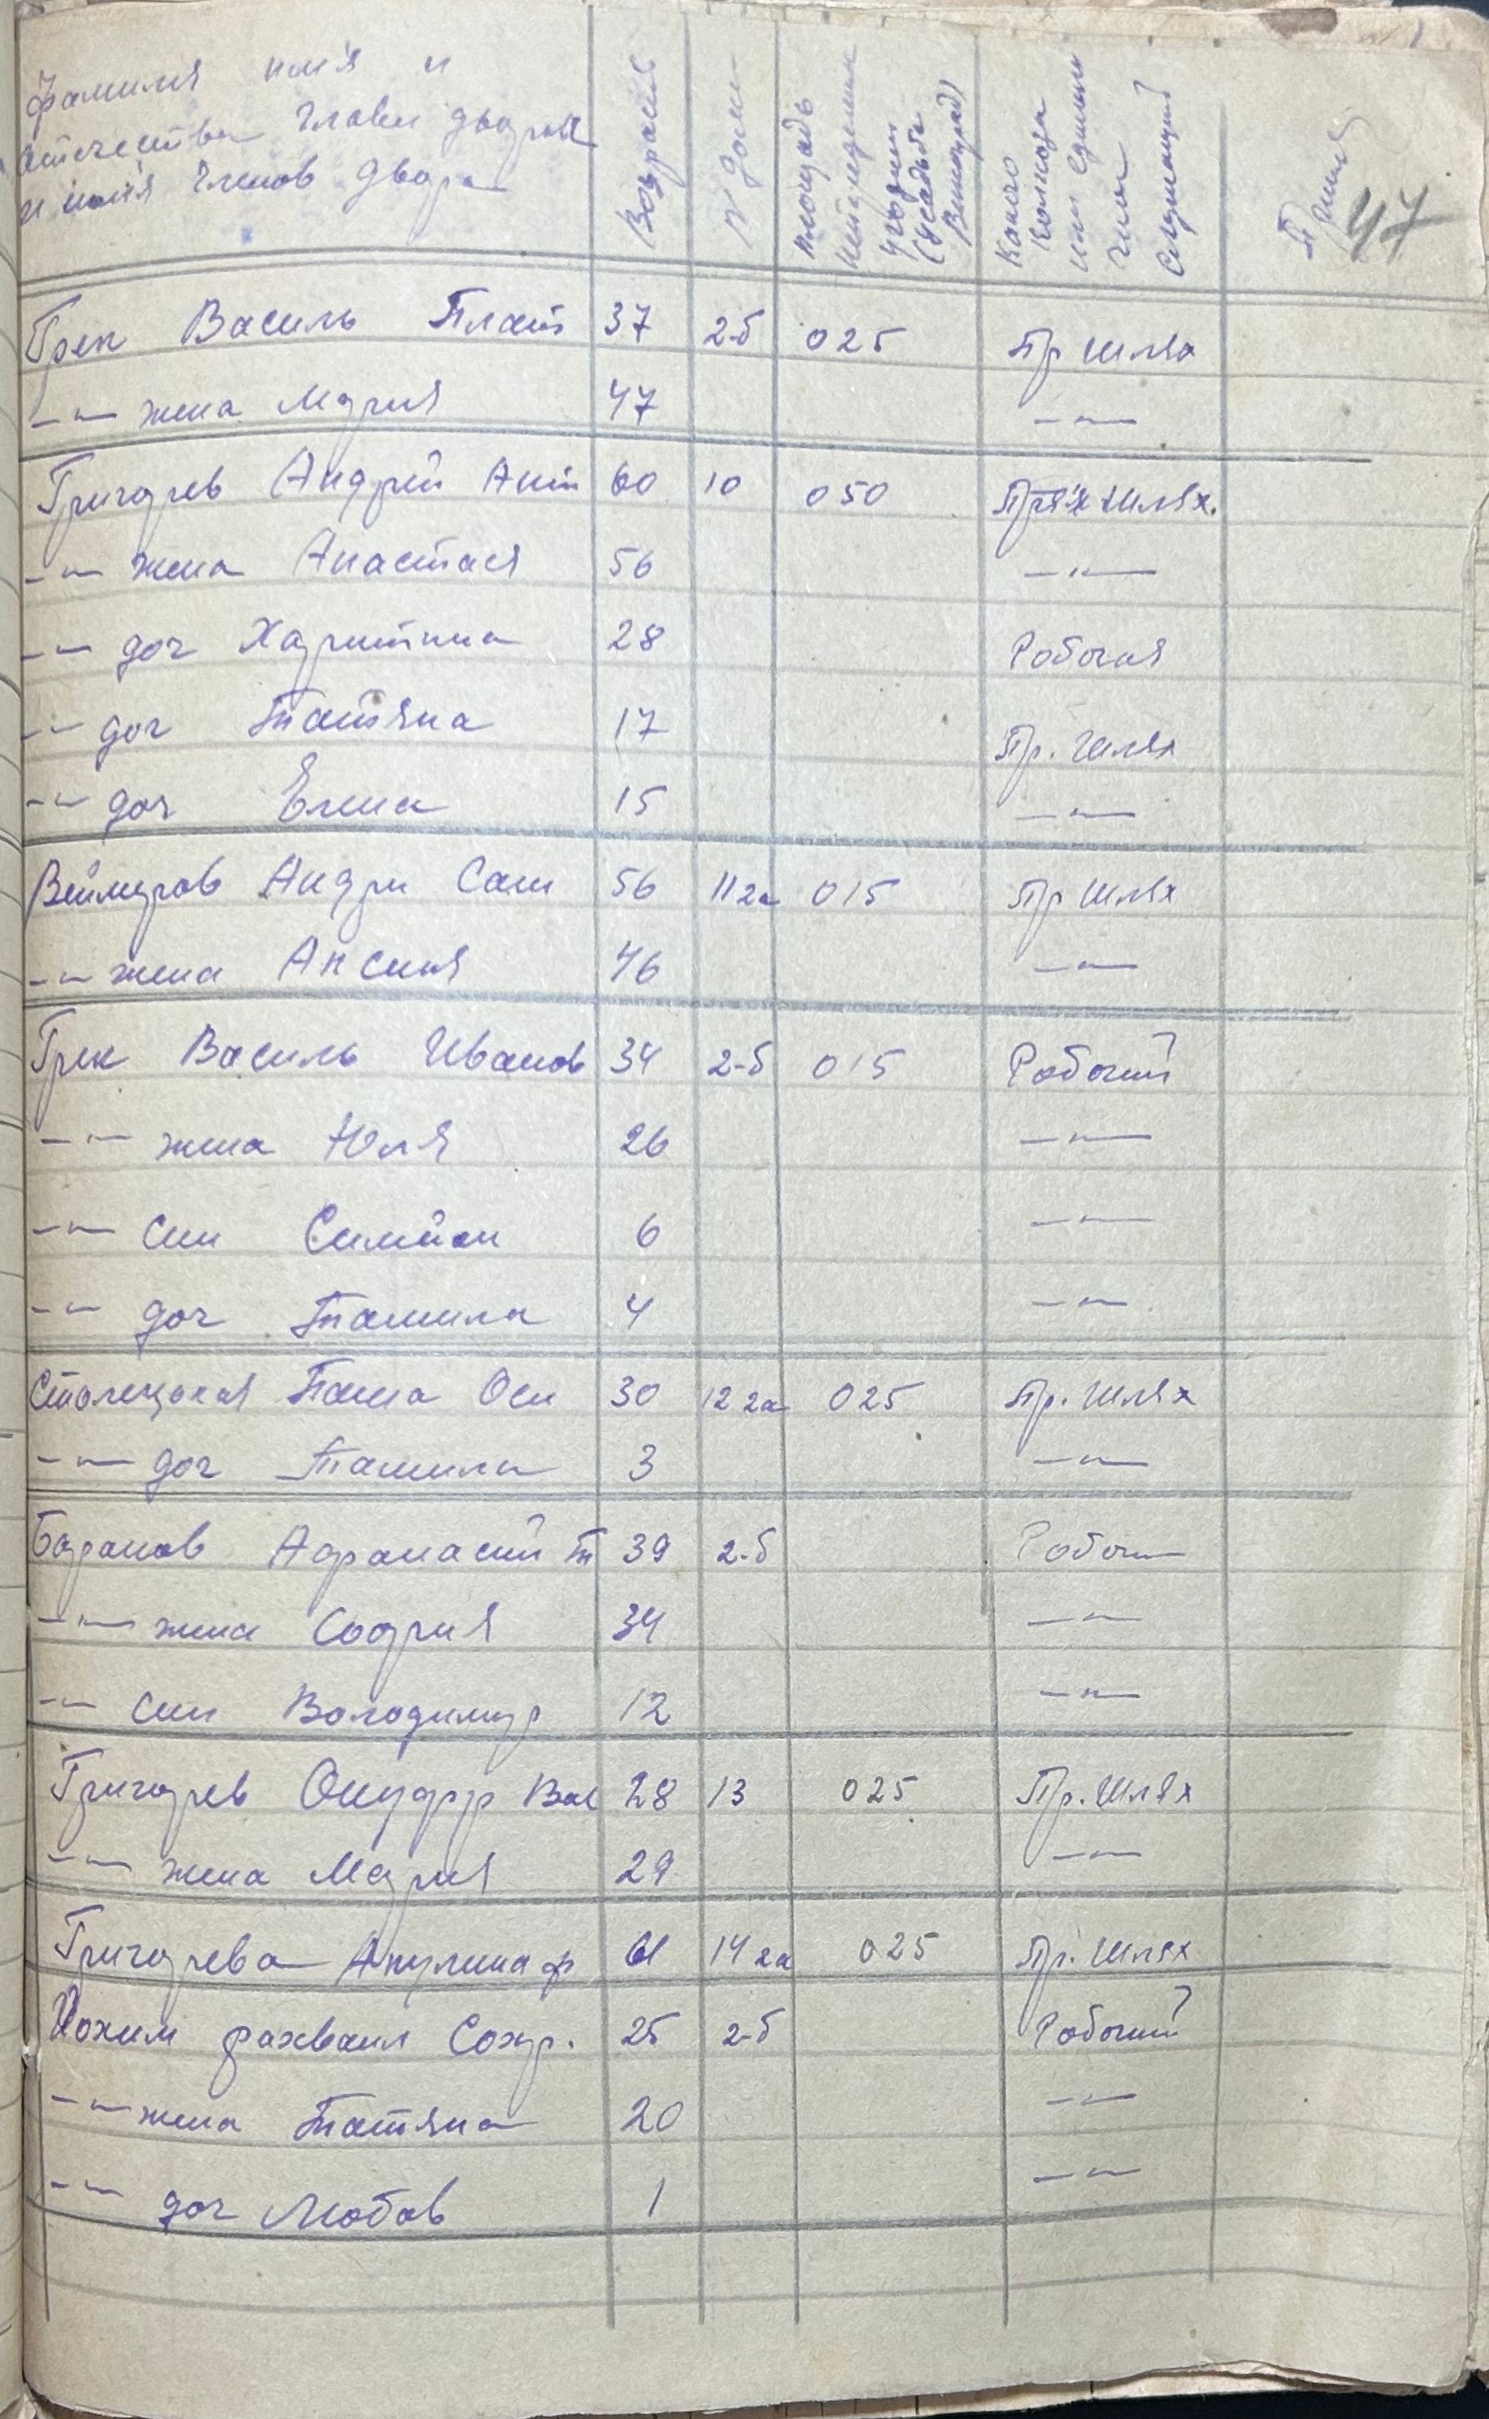 Фамилия имя и
отечества главы двора
и имя членов двора
Возраст
№ дома
площадь
(усадьба
виноград)
Какого
колхоза
или единол
Прим
47
Грек Василь Плат 37 2-б 025 Пр Шлях
-"- жена Мария 47 -"-
Григорев Андрей Ант 60 10 050 Прях Шлях.
-"- жена Анастася 56 -"-
-"- доч Харитина 28 Робочая
-"- доч Татяна 17 Пр. Шлях
-"- доч Елена 15 -"-
Веймеров Андри Сам 56 11 2а 015 Пр Шлях
-"- жена Аксиня 46 -"-
Грек Василь Иванов 34 2-б 015 Робочий
-"- жена Юля 26 -"-
-"- син Симион 6 -"-
-"- доч Тамила 4 -"-
Паша Оси 30 12 2а 025 Пр. Шлях
-"- доч Тамила 3 -"-
Баранов Афанасий Т 39 2-б Робочи
-"- жена София 34 -"-
-"- син Володимир 12 -"-
Григорев Онуфри Вас 28 13 025 Пр. Шлях
-"- жена Мария 29 -"-
Григорева Акулина ф 61 14 2а 025 Пр. Шлях
Йохим рахваил Сохр. 25 2-б Робочий
-"- жена Татяна 20 -"-
-"- доч Любов 1 -"-